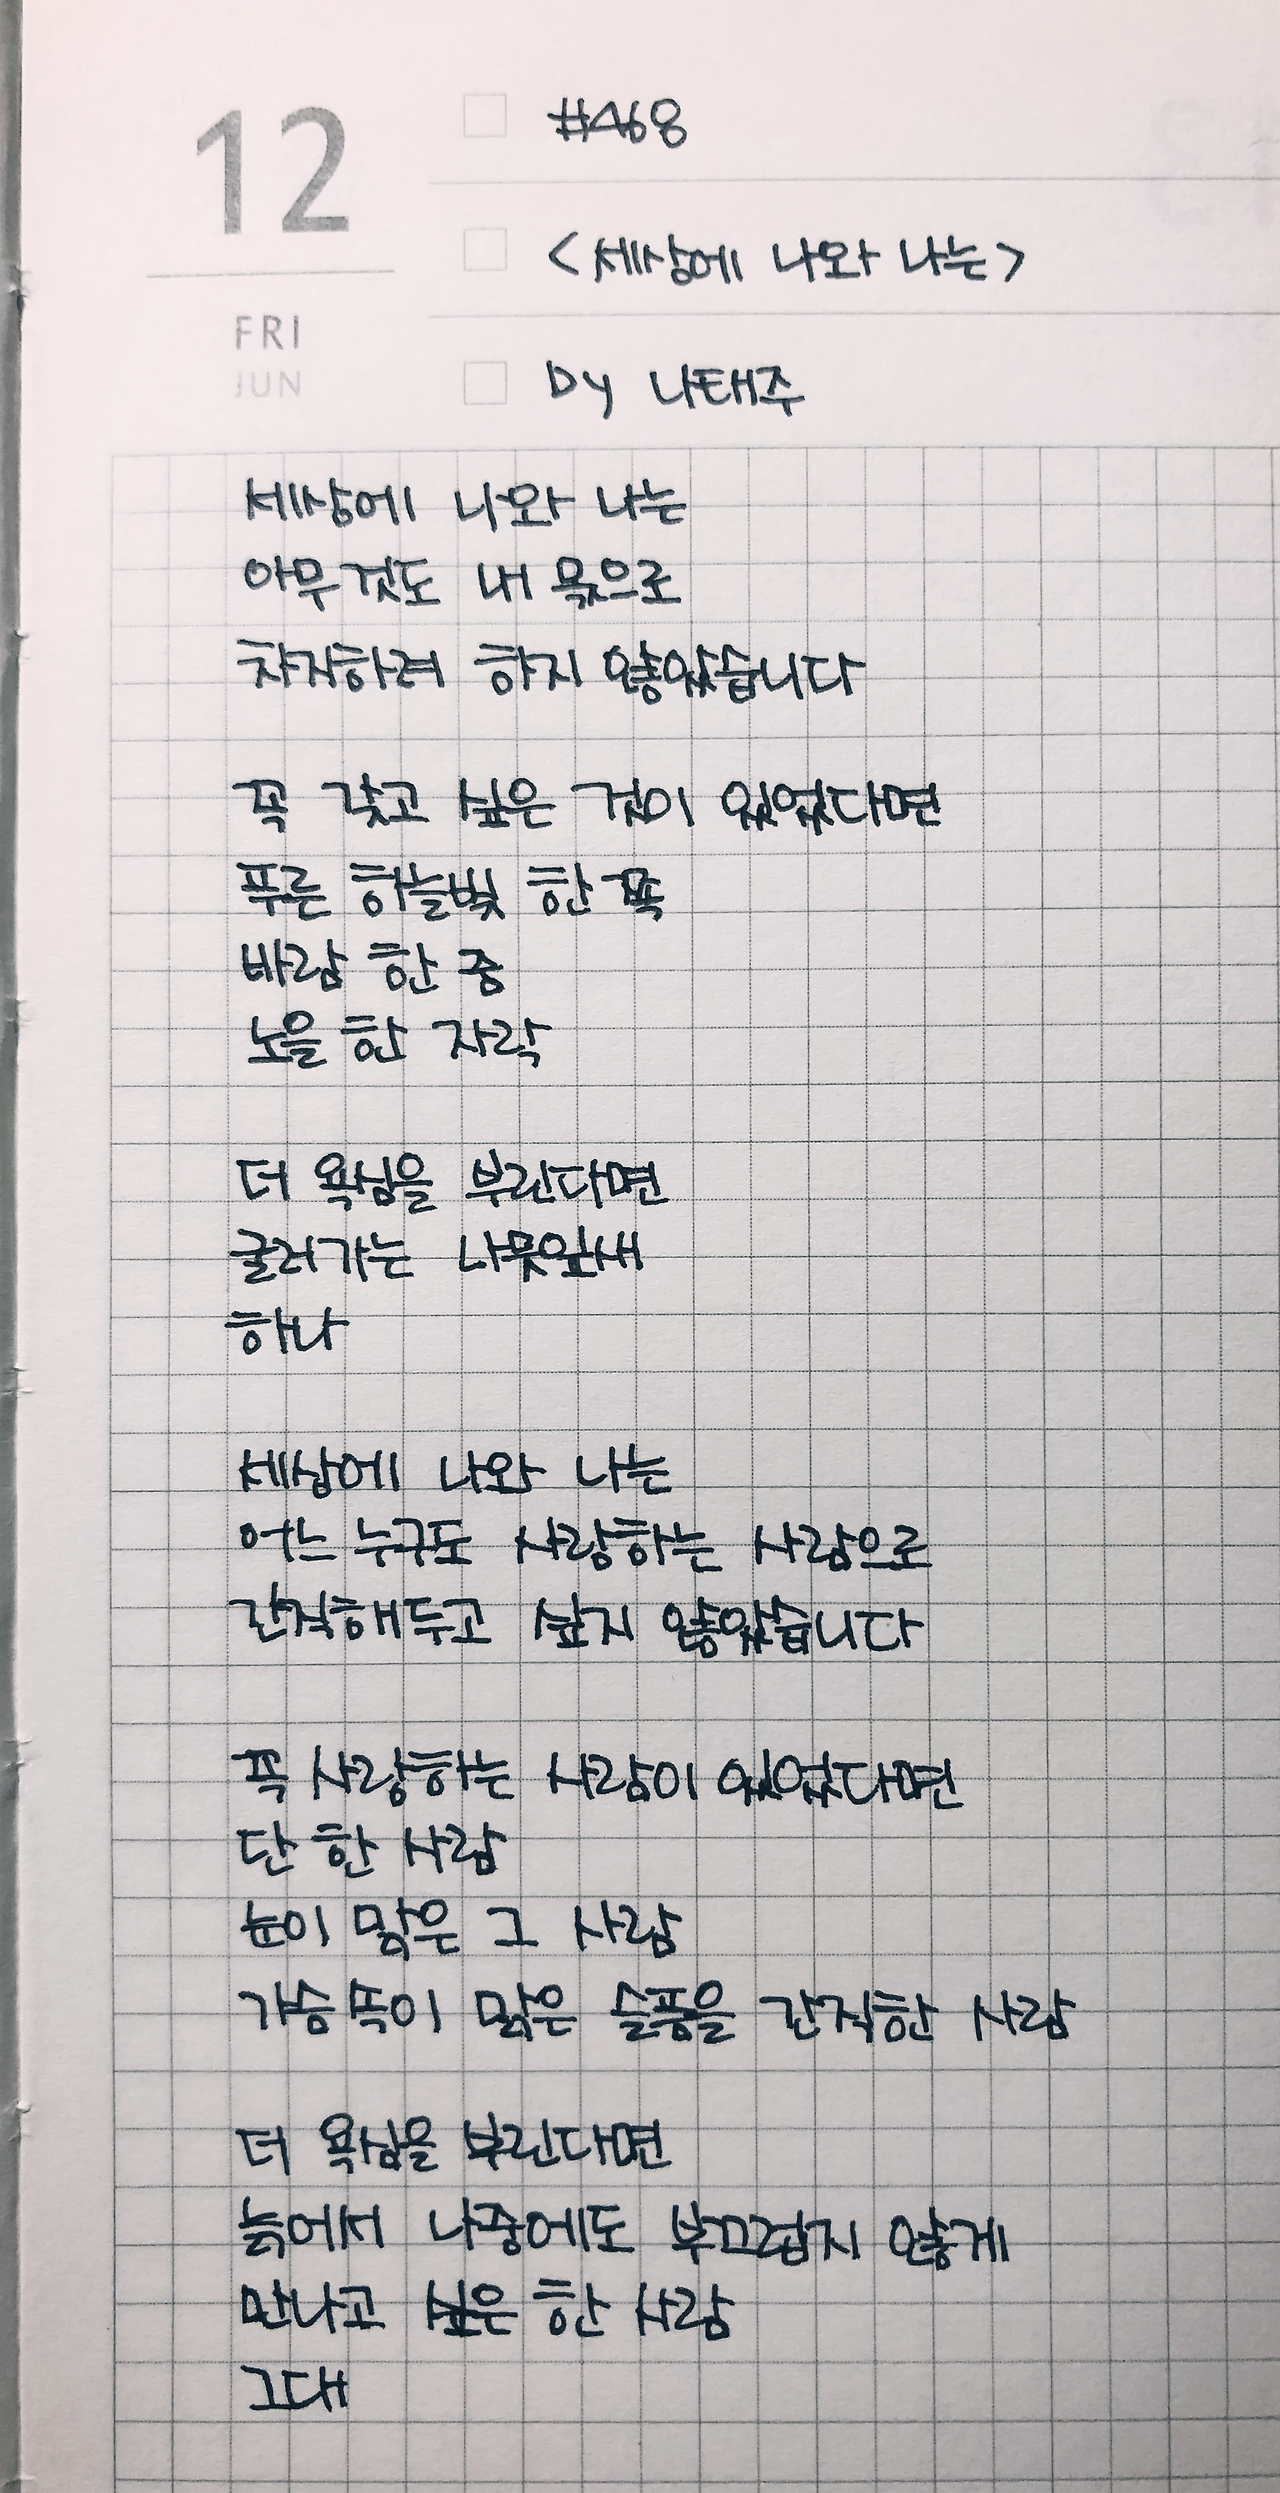 12
FRI
JUN
#468
<세상에 나와 나는>
by 나태주
세상에 나와 나는
아무것도 내 몫으로
차지하려 하지 않았습니다
꼭 갖고 싶은 것이 있었다면
푸른 하늘빛 한 쪽
바람 한 줌
노을 한 자락
더 욕심을 부린다면
굴러가는 나뭇잎새
하나
세상에 나와 나는
어느 누구도 사랑하는 사람으로
간직해두고 싶지 않았습니다
꼭 사랑하는 사람이 있었다면
단 한 사람
눈이 맑은 그 사람
가슴 속이 맑은 슬픔을 간직한 사람
더 욕심을 부린다면
늙어서 나중에도 부끄럽지 않게
만나고 싶은 한 사람
그대